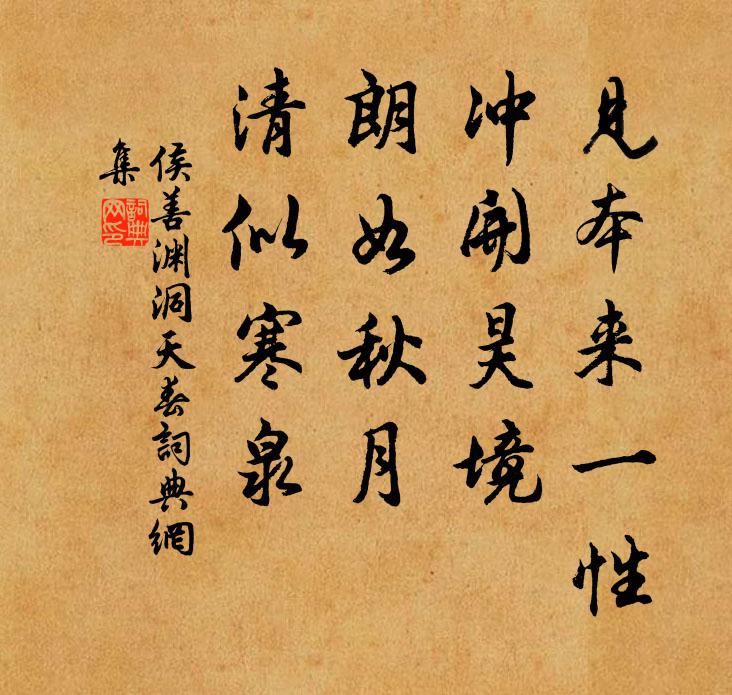 见本来一性
冲开昊境
朗如秋月
清似寒泉
侯善渊洞天春詞典網
集
詞典网印